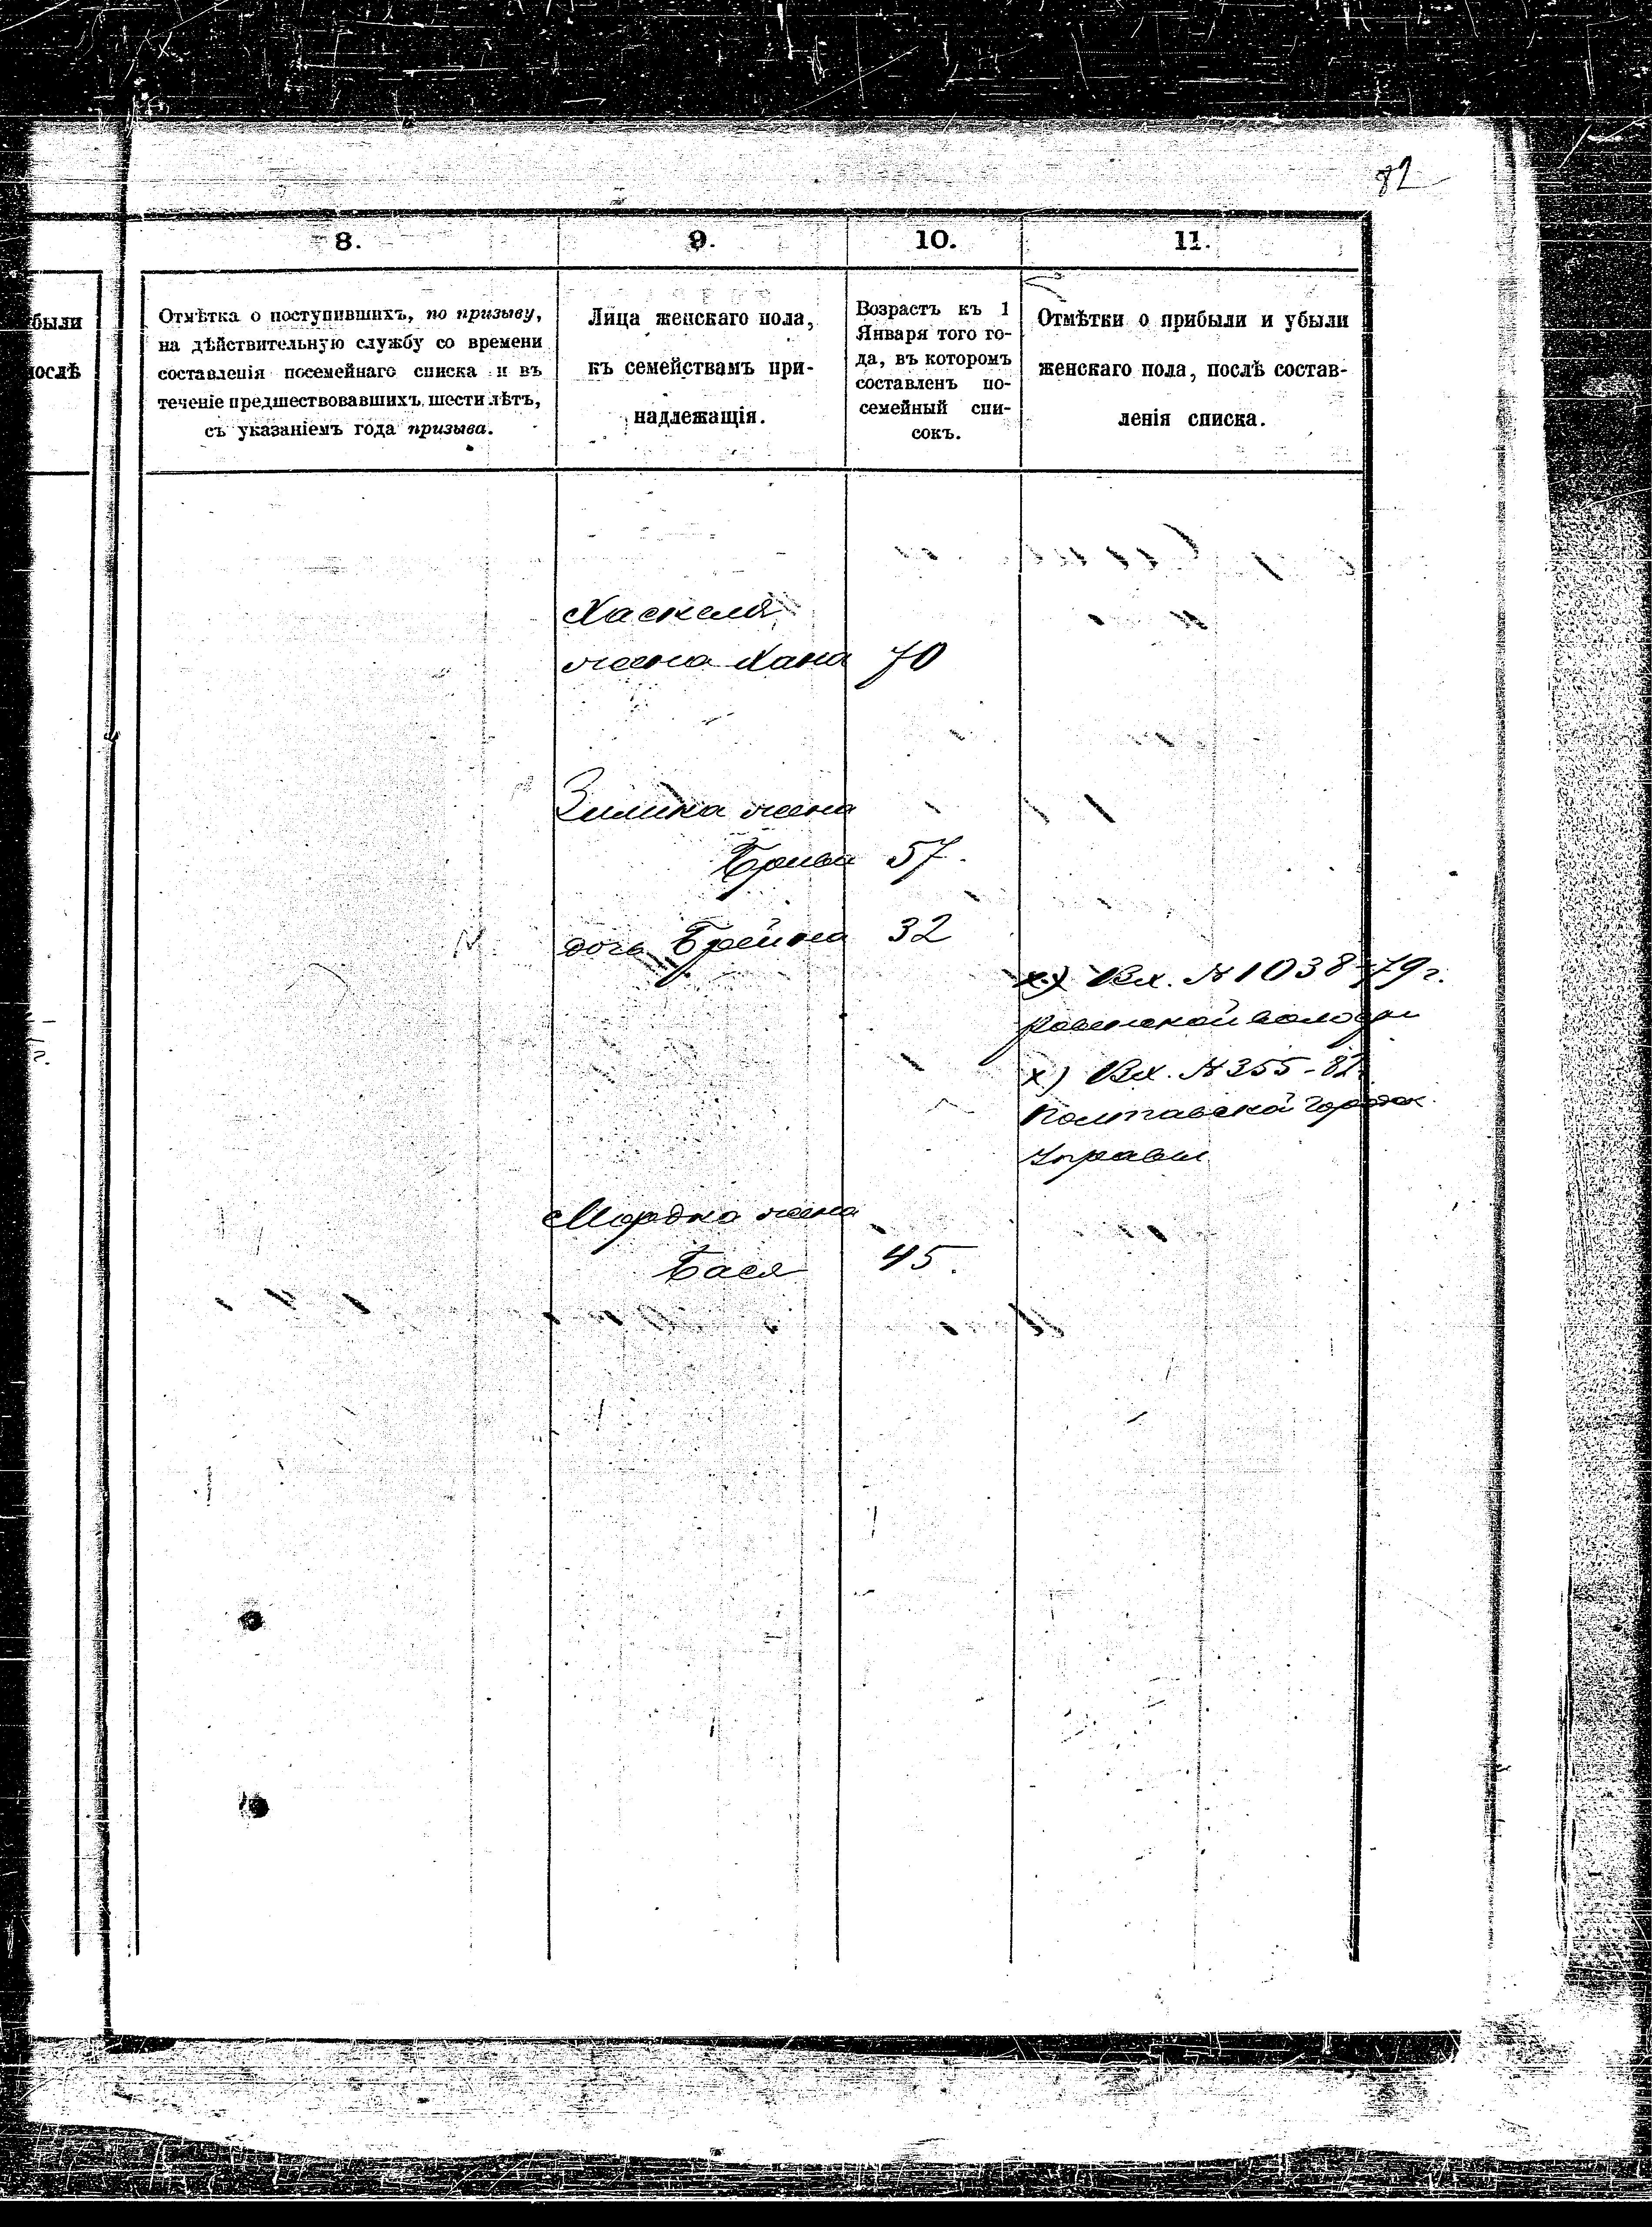 82
8.
9.
10.
11.
были
послѣ
Отмѣтка о поступившихъ, по призыву,
на дѣйствительную службу со времени
составленія посемейнаго списка и въ
теченіе предшествовавшихъ шести лѣтъ,
съ указаніемъ года призыва.
Лица женскаго пола,
къ семействамъ при-
надлежащія.
Возрастъ къ 1
Января того го-
да, въ которомъ
составленъ по-
семейный спи-
сокъ.
Отмѣтки о прибыли и убыли
женскаго пола, послѣ состав-
ленія списка.
Хаскеля
жена Хана 70
жена
57.
дочь Брейна 32
х.х) Вх. № 1038-79 г.
х) Вх. № 355-82
Полтавской городск.
Управы
Мордка жена
Бася 45.